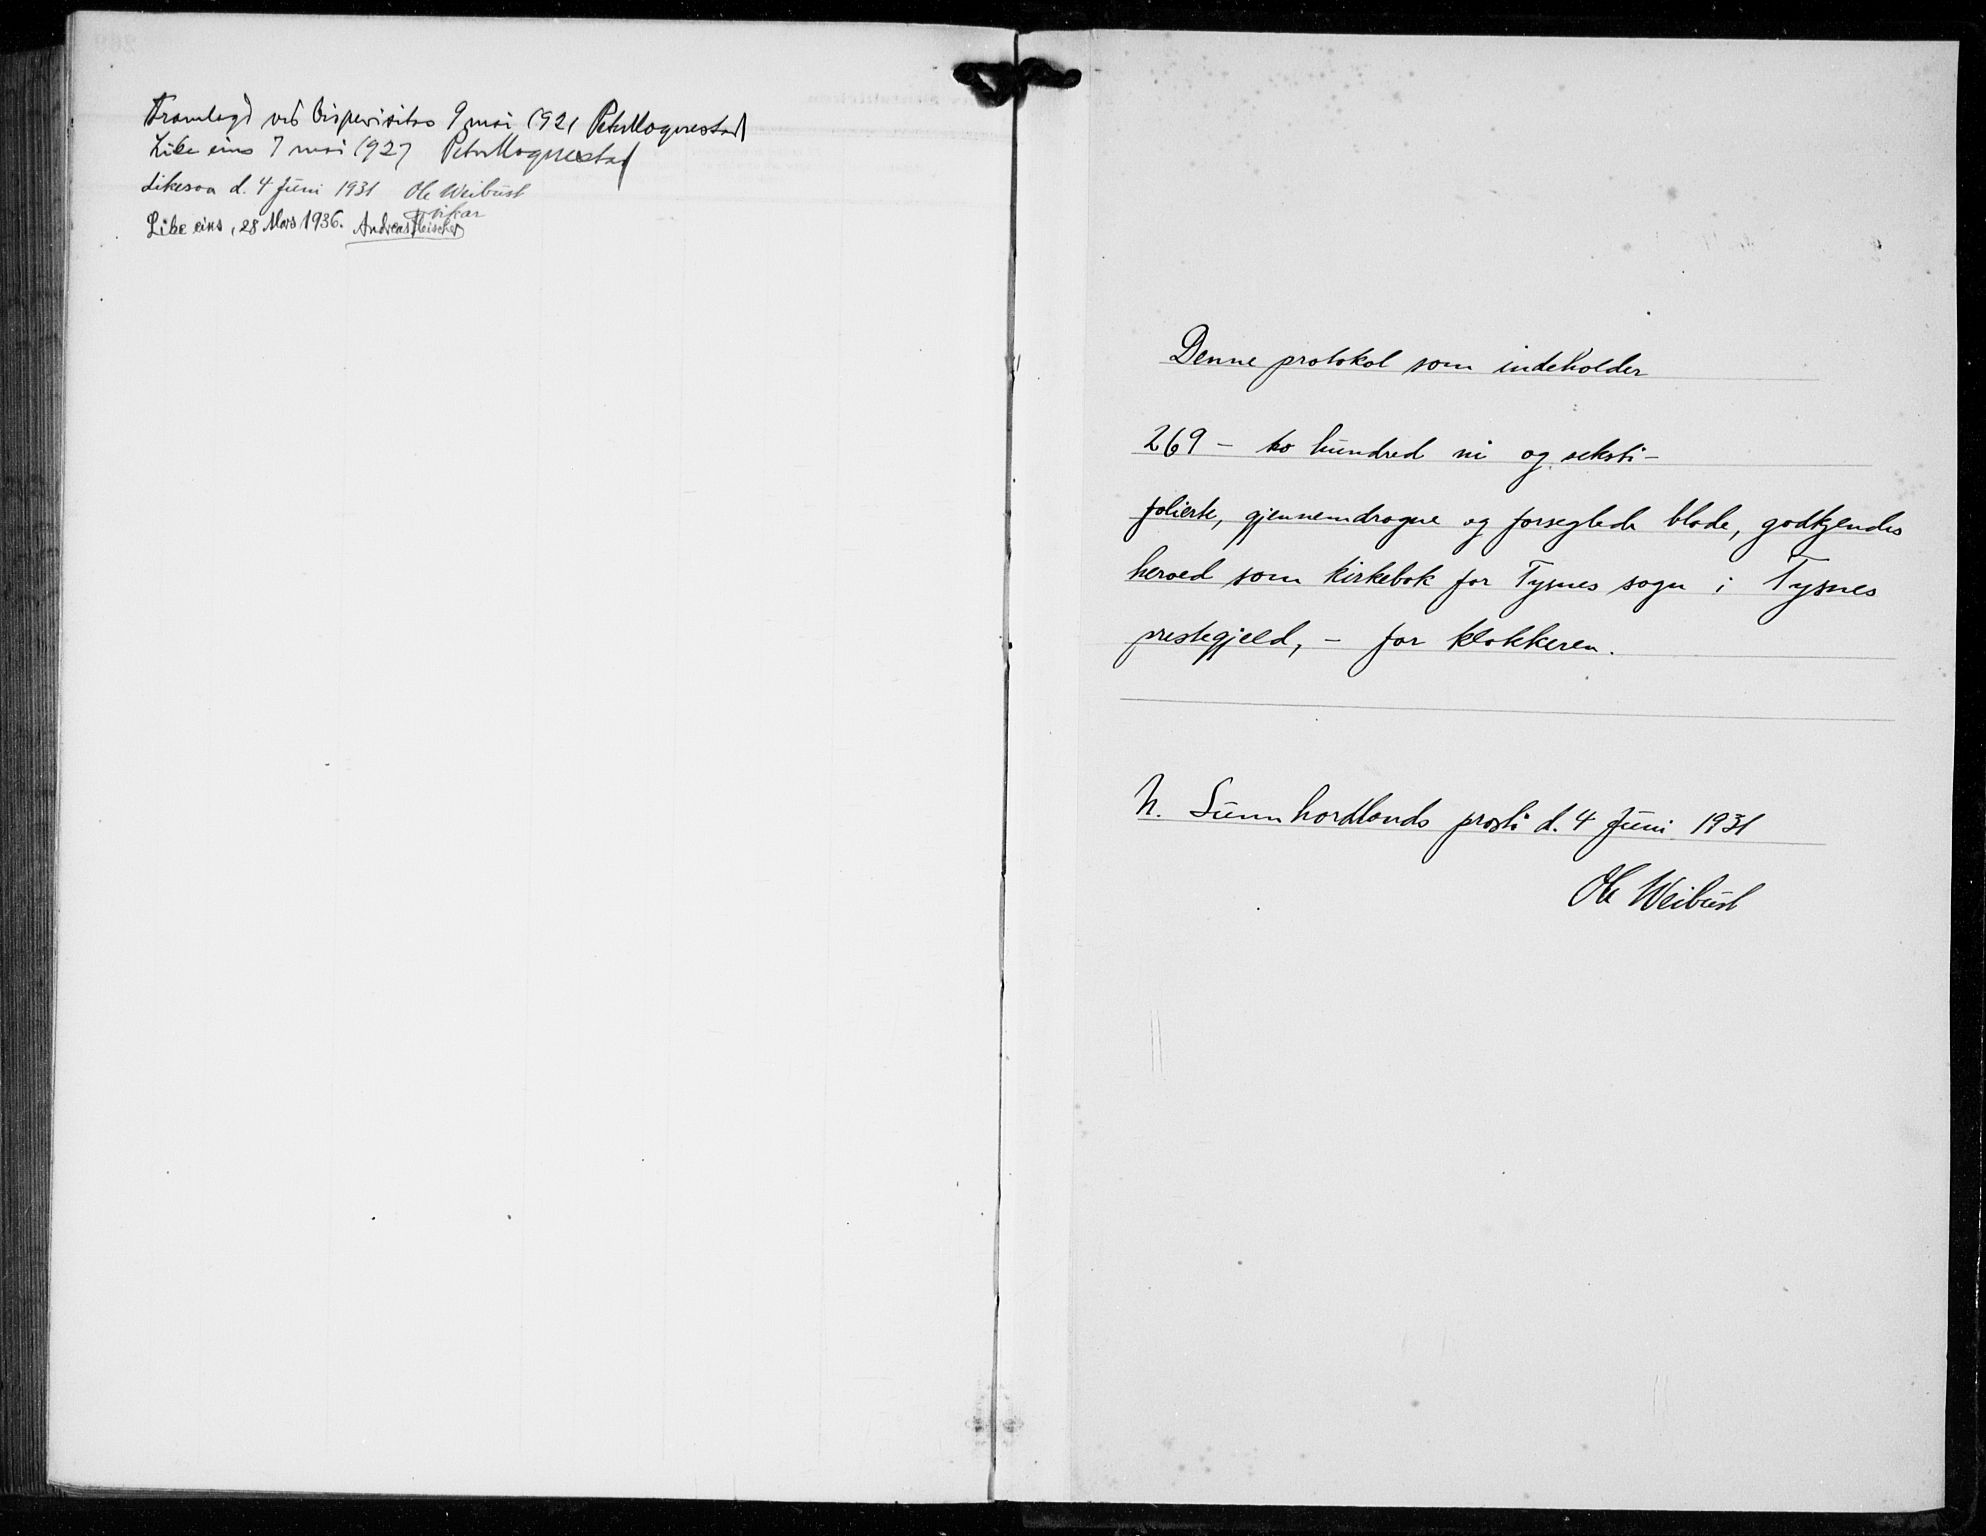 Framlagd ved bispevisitas 9 mai 1921 Peter Hognestad
Like eins 7 mai 1927 Peter Hognestad
Likesaa d. 4 Juni 1931 Ole Weibust
vikar
Like eins, 28 Mars 1936. Andreas Fleischer
Denne protokol som indeholder
269 – to hundred ni og seksti –
folierte, gjennemdragne og forseglede blade, godkjendes
herved som kirkebok for Tysnes sogn i Tysnes
prestegjeld, – for klokkeren.
N. Sunnhordlands prosti d. 4 Juni 1931
Ole Weibust